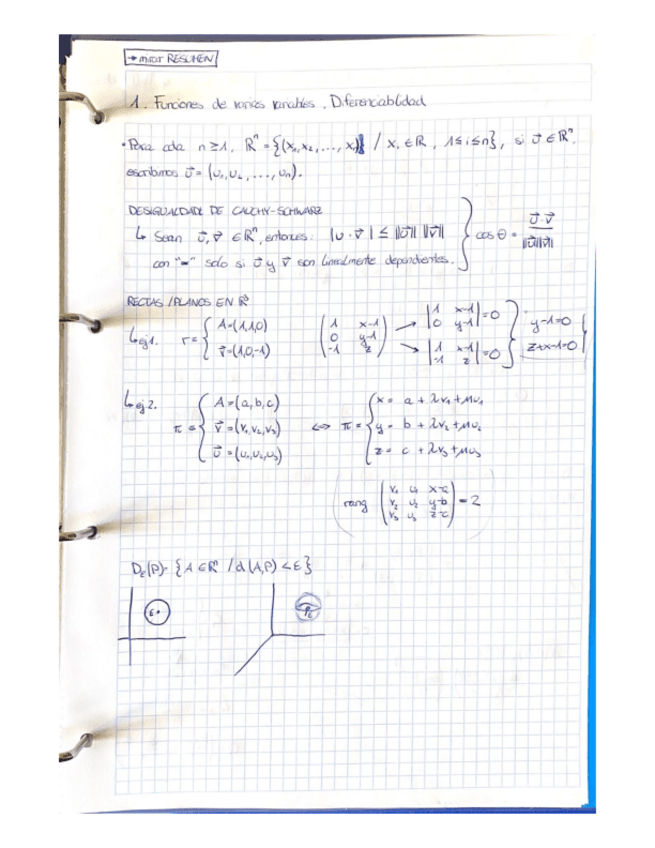 → mirar RESUMEN
1. Funciones de varias variables. Diferenciabilidad
• Para cada n≥1, ℝⁿ = {(x₁,x₂,...,xₙ) / xᵢ ∈ ℝ, 1≤i≤n}, si u⃗ ∈ ℝⁿ,
escribimos u⃗ = (u₁,u₂,...,uₙ).
DESIGUALDADE DE CAUCHY-SCHWARZ
↳ Sean u⃗, v⃗ ∈ ℝⁿ, entonces: |u·v⃗| ≤ ||u⃗|| ||v⃗|| } cos θ = u⃗·v⃗ / ||u⃗|| ||v⃗||
con "=" solo si u⃗ y v⃗ son linealmente dependientes.
RECTAS/PLANOS EN ℝ³
↳ ej1. r ≡ { A=(1,1,0) v⃗=(1,0,-1)
(1 x-1 / 0 y-1 / -1 z) → |1 x-1 / 0 y-1| = 0 → |1 x-1 / -1 z| = 0 } y-1=0 z+x-1=0
↳ ej2. π ≡ { A=(a,b,c) v⃗=(v₁,v₂,v₃) u⃗=(u₁,u₂,u₃)
⟺ π ≡ { x = a + λv₁ + μu₁ y = b + λv₂ + μu₂ z = c + λv₃ + μu₃
rang (v₁ u₁ x-a / v₂ u₂ y-b / v₃ u₃ z-c) = 2
D_ε(P) = {A ∈ ℝⁿ / d(A,P) < ε}
ε